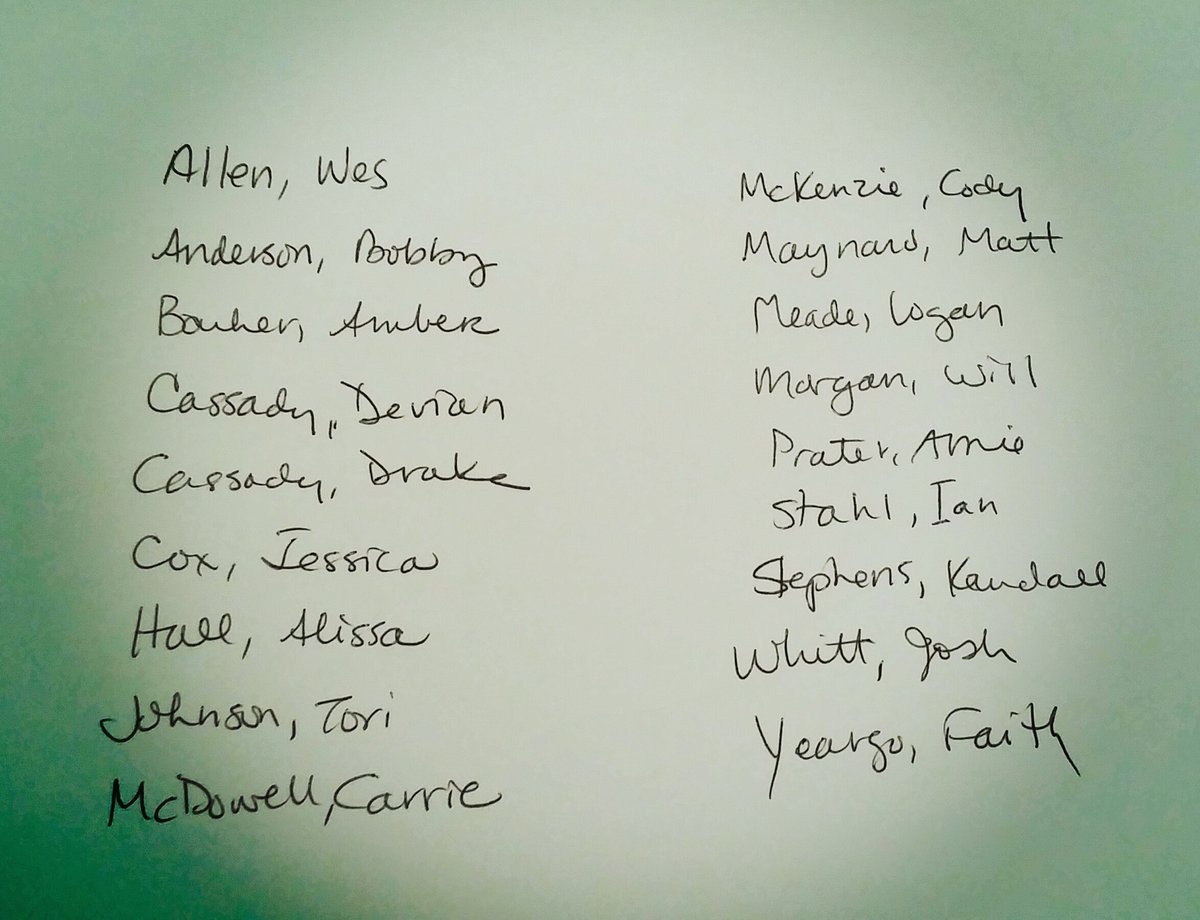 Allen, Wes
Anderson, Bobby
Amber
Cassady, Devian
Cassady, Drake
Cox, Jessica
Hall, Alissa
Johnson, Tori
McDowell, Carrie
McKenzie, Cody
Maynard, Matt
Meade, Logan
Morgan, Will
Prater, Amie
Stahl, Ian
Stephens, Kendall
Whitt, Josh
Yeargo, Faith